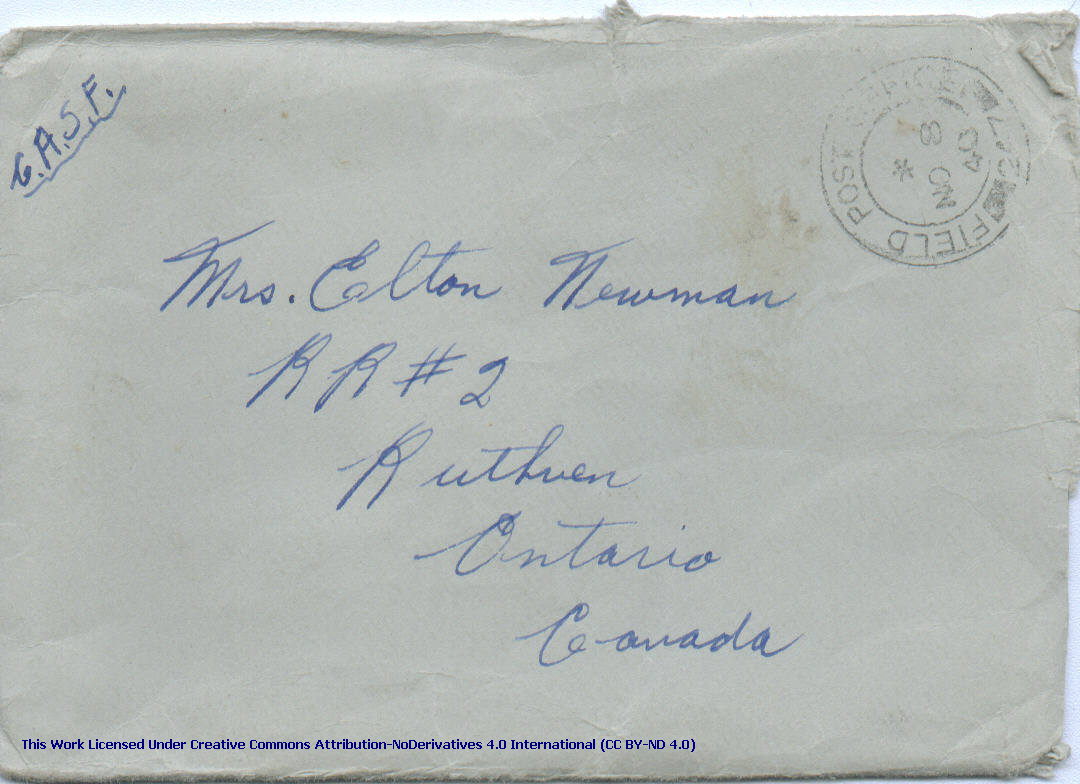 C.A.S.F.
FIELD POST OFFICE
*
8 NO
40
Mrs. Elton Newman
RR #2
Ruthven
Ontario
Canada
This Work Licensed Under Creative Commons Attribution-NoDerivatives 4.0 International (CC BY-ND 4.0)